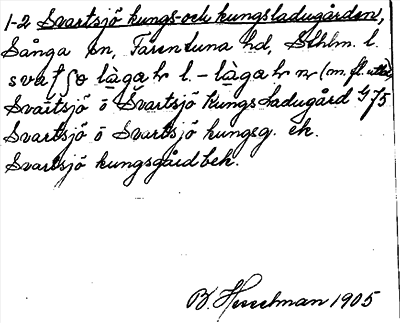 1-2 Svartsjö kungs- och kungsladugården,
Sånga sn, Färentuna hd, Sthlm. l.
Svartsjö o Svartsjö Kungs Ladugård G 75
Svartsjö o Svartsjö kungsg. ek.
Svartsjö kungsgård beh.
B. Hesselman 1905